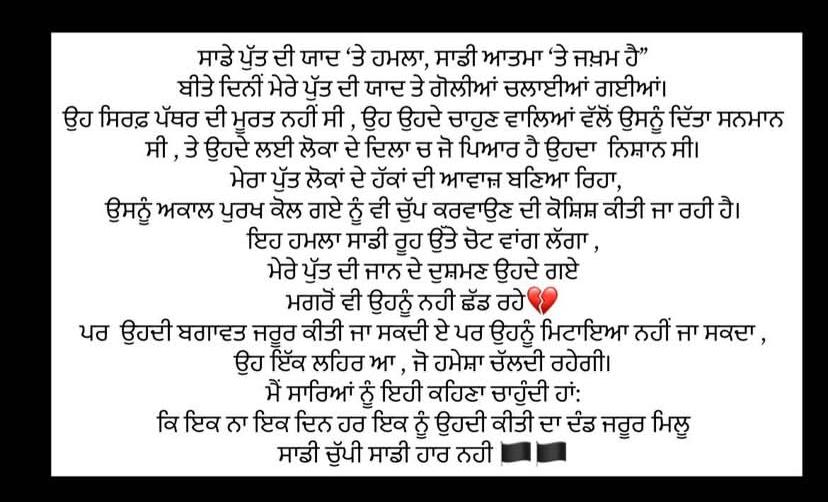 ਸਾਡੇ ਪੁੱਤ ਦੀ ਯਾਦ ‘ਤੇ ਹਮਲਾ, ਸਾਡੀ ਆਤਮਾ ‘ਤੇ ਜਖ਼ਮ ਹੈ”
ਬੀਤੇ ਦਿਨੀਂ ਮੇਰੇ ਪੁੱਤ ਦੀ ਯਾਦ ਤੇ ਗੋਲੀਆਂ ਚਲਾਈਆਂ ਗਈਆਂ।
ਉਹ ਸਿਰਫ਼ ਪੱਥਰ ਦੀ ਮੂਰਤ ਨਹੀਂ ਸੀ , ਉਹ ਉਹਦੇ ਚਾਹੁਣ ਵਾਲਿਆਂ ਵੱਲੋਂ ਉਸਨੂੰ ਦਿੱਤਾ ਸਨਮਾਨ
ਸੀ , ਤੇ ਉਹਦੇ ਲਈ ਲੋਕਾ ਦੇ ਦਿਲਾ ਚ ਜੋ ਪਿਆਰ ਹੈ ਉਹਦਾ ਨਿਸ਼ਾਨ ਸੀ।
ਮੇਰਾ ਪੁੱਤ ਲੋਕਾਂ ਦੇ ਹੱਕਾਂ ਦੀ ਆਵਾਜ਼ ਬਣਿਆ ਰਿਹਾ,
ਉਸਨੂੰ ਅਕਾਲ ਪੁਰਖ ਕੋਲ ਗਏ ਨੂੰ ਵੀ ਚੁੱਪ ਕਰਵਾਉਣ ਦੀ ਕੋਸ਼ਿਸ਼ ਕੀਤੀ ਜਾ ਰਹੀ ਹੈ।
ਇਹ ਹਮਲਾ ਸਾਡੀ ਰੂਹ ਉੱਤੇ ਚੋਟ ਵਾਂਗ ਲੱਗਾ ,
ਮੇਰੇ ਪੁੱਤ ਦੀ ਜਾਨ ਦੇ ਦੁਸ਼ਮਣ ਉਹਦੇ ਗਏ
ਮਗਰੋਂ ਵੀ ਉਹਨੂੰ ਨਹੀ ਛੱਡ ਰਹੇ💔
ਪਰ ਉਹਦੀ ਬਗਾਵਤ ਜਰੂਰ ਕੀਤੀ ਜਾ ਸਕਦੀ ਏ ਪਰ ਉਹਨੂੰ ਮਿਟਾਇਆ ਨਹੀਂ ਜਾ ਸਕਦਾ ,
ਉਹ ਇੱਕ ਲਹਿਰ ਆ , ਜੋ ਹਮੇਸ਼ਾ ਚੱਲਦੀ ਰਹੇਗੀ।
ਮੈਂ ਸਾਰਿਆਂ ਨੂੰ ਇਹੀ ਕਹਿਣਾ ਚਾਹੁੰਦੀ ਹਾਂ:
ਕਿ ਇਕ ਨਾ ਇਕ ਦਿਨ ਹਰ ਇਕ ਨੂੰ ਉਹਦੀ ਕੀਤੀ ਦਾ ਦੰਡ ਜਰੂਰ ਮਿਲੂ
ਸਾਡੀ ਚੁੱਪੀ ਸਾਡੀ ਹਾਰ ਨਹੀ 🏴🏴